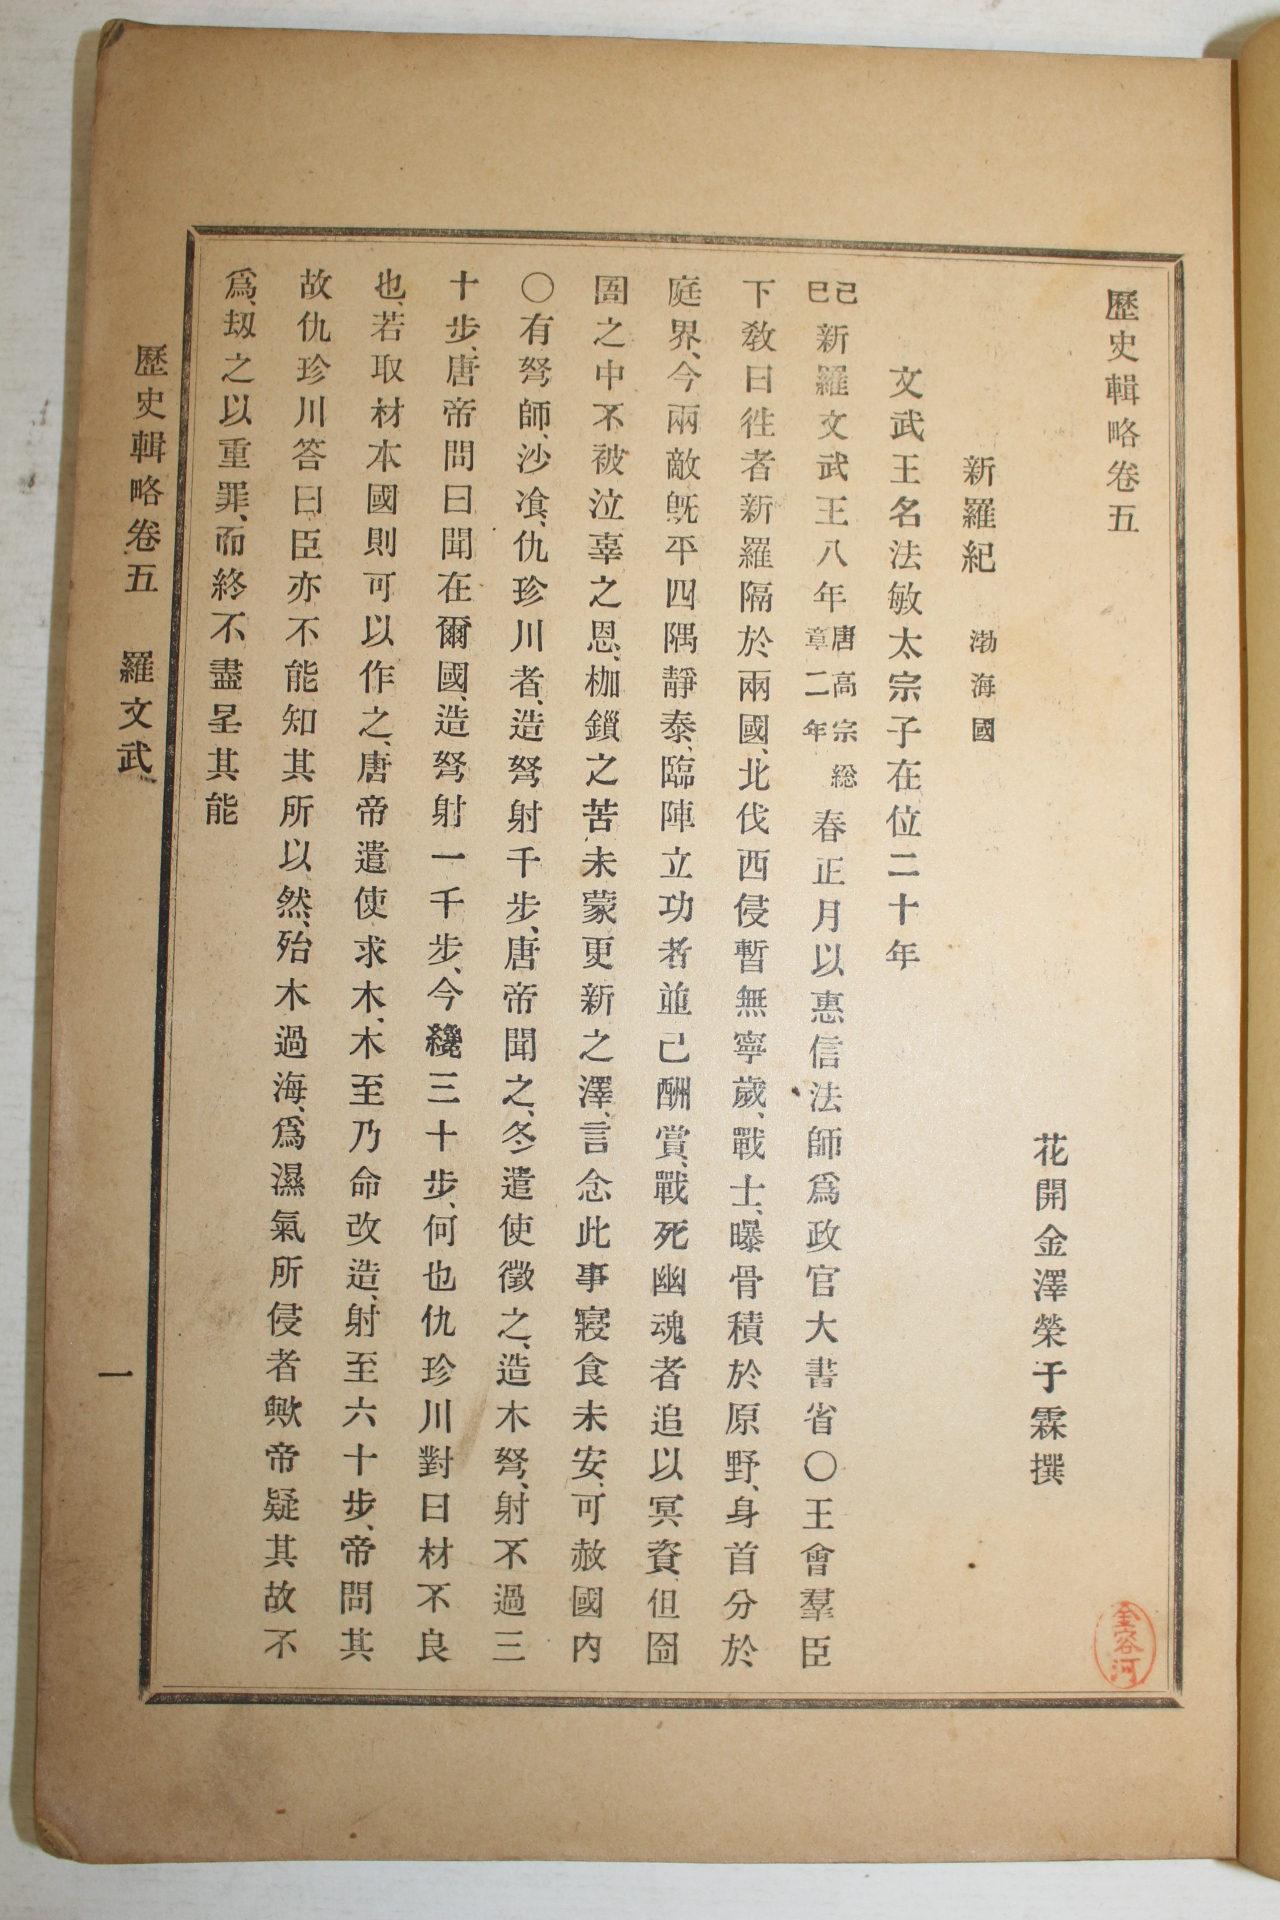 歷史輯略卷五
花開金澤榮于霖撰
新羅紀 渤海國
文武王名法敏太宗子在位二十年
己巳新羅文武王八年唐高宗総章二年春正月以惠信法師爲政官大書省〇王會羣臣
下敎曰徃者新羅隔於兩國、北伐西侵暫無寧歲、戰士、曝骨積於原野、身首分於
庭界、今兩敵旣平四隅靜泰、臨陣立功者並己酬賞、戰死幽魂者追以冥資、但囹
圄之中不被泣辜之恩、枷鎖之苦未蒙更新之澤、言念此事寢食未安、可赦國内
〇有弩師、沙飡、仇珍川者、造弩射千步、唐帝聞之、冬遣使徵之、造木弩、射不過三
十步、唐帝問曰聞在爾國、造弩射一千步、今纔三十步、何也仇珍川對曰材不良
也、若取材本國則可以作之、唐帝遣使求木、木至乃命改造、射至六十步、帝問其
故仇珍川答曰臣亦不能知其所以然、殆木過海、爲濕氣所侵者歟帝疑其故不
爲、刼之以重罪、而終不盡呈其能
歷史輯略卷五 羅文武 一
金容河